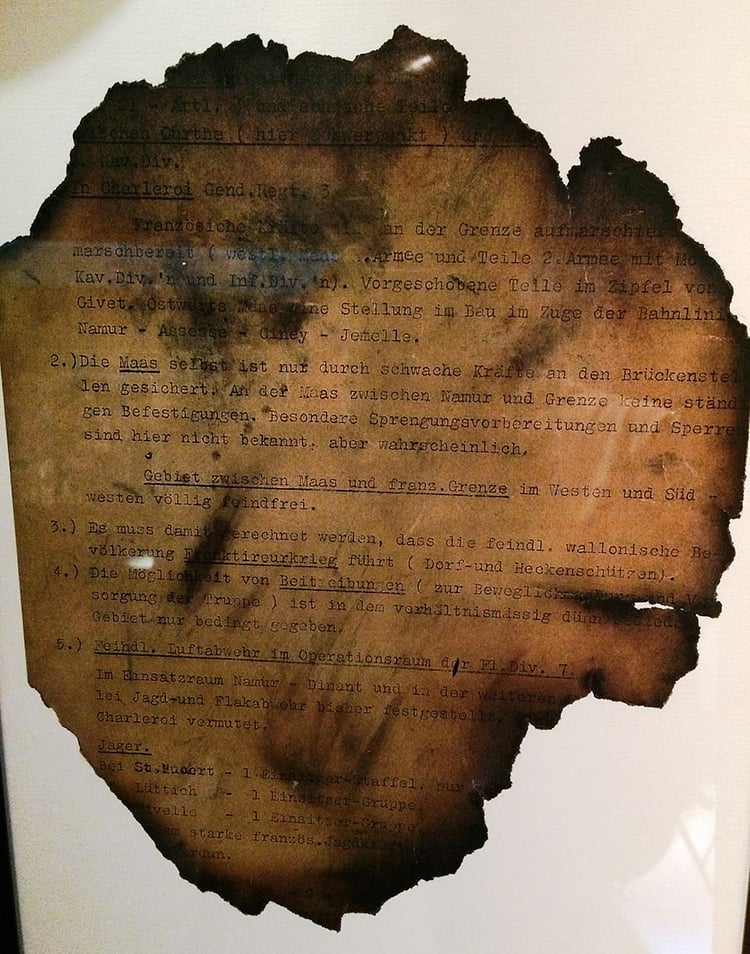 - Artl. und schwache Teile
Ourthe ( hier Schwerpunkt ) und
Kav.Div.
In Charleroi Gend.Regt. 3
Französiche Kräfte an der Grenze aufmarschier
marschbereit ( westl. Maas .Armee und Teile 2.Armee mit Mo
Kav.Div.'n und Inf.Div.'n). Vorgeschobene Teile im Zipfel von
Givet. Ostwärts Maas eine Stellung im Bau im Zuge der Bahnlini
Namur - Assesse - Ciney - Jemelle.
2.)Die Maas selbst ist nur durch schwache Kräfte an den Brückenstel
len gesichert. An der Maas zwischen Namur und Grenze keine ständ
gen Befestigungen. Besondere Sprengungsvorbereitungen und Sperren
sind hier nicht bekannt, aber wahrscheinlich.
Gebiet zwischen Maas und franz.Grenze im Westen und Süd -
westen völlig feindfrei.
3.) Es muss damit gerechnet werden, dass die feindl. wallonische Be-
völkerung Franktireurkrieg führt ( Dorf-und Heckenschützen).
4.) Die Möglichkeit von Beitreibungen ( zur und V
sorgung der Truppe ) ist in dem verhältnismässig dünn
Gebiet nur bedingt gegeben.
5.) Feindl. Luftabwehr im Operationsraum der Fl.Div. 7.
Im Einsatzraum Namur - Dinant und in der weiteren
lei Jagd-und Flakabwehr bisher festgestellt.
Charleroi vermutet.
Jäger.
Bei St.Hubert - 1 Einsitzer-Staffel, nur
Lüttich - 1 Einsitzer-Gruppe,
ivelle - 1 Einsitzer-Gruppe,
m starke französ.Jagdkräf
rdun.